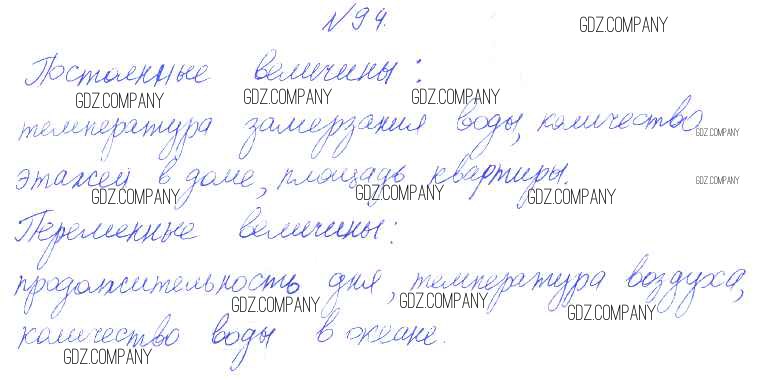 №94.
GDZ.COMPANY
Постоянные величины:
GDZ.COMPANY GDZ.COMPANY GDZ.COMPANY
температура замерзания воды, количество
GDZ.COMPANY
этажей в доме, площадь квартиры.
GDZ.COMPANY GDZ.COMPANY GDZ.COMPANY GDZ.COMPANY
Переменные величины:
продолжительность дня, температура воздуха,
GDZ.COMPANY GDZ.COMPANY GDZ.COMPANY
количество воды в океане.
GDZ.COMPANY